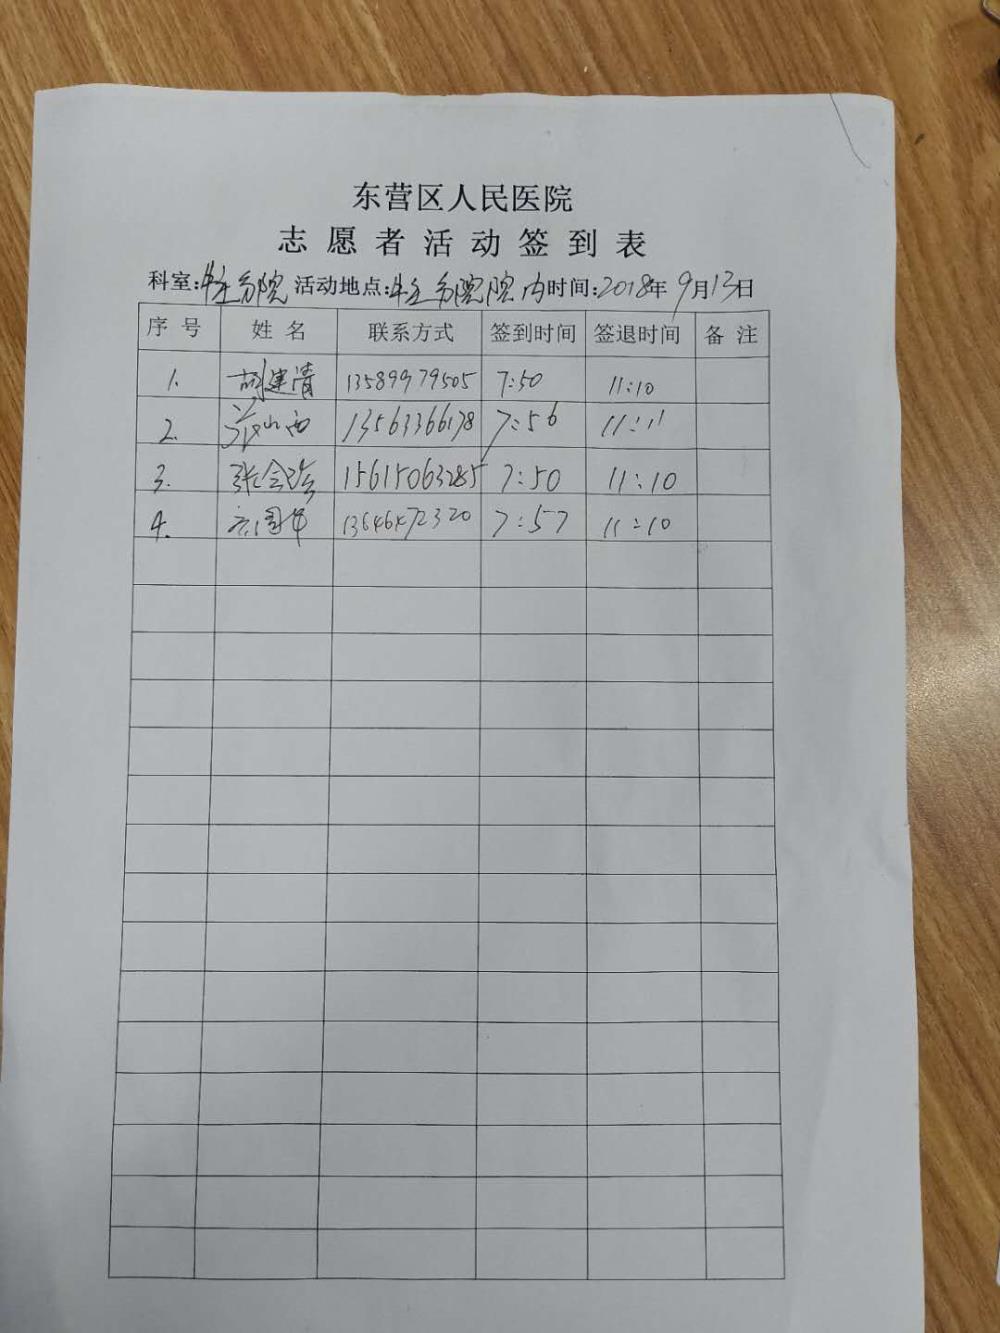 东营区人民医院
志愿者活动签到表
科室:牛庄分院 活动地点:牛庄分院院内 时间:2018年9月13日
序号 姓名 联系方式 签到时间 签退时间 备注
1. 胡建清 13589979505 7:50 11:10
2. 山西 13563366178 7:56 11:11
3. 张会珍 15615063285 7:50 11:10
4. 13646472320 7:57 11:10